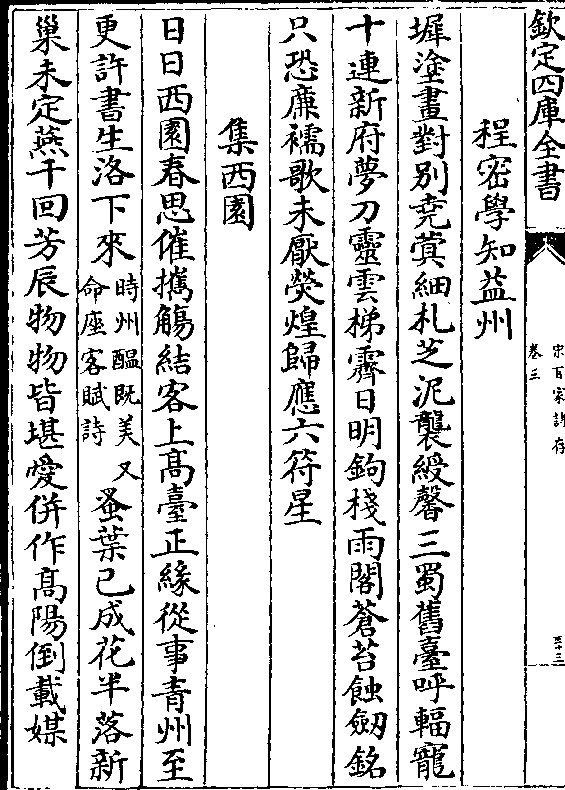 欽定四庫全書
宋百家詩存
卷三
程密學知益州
墀塗畫對别堯蓂細札芝泥襲綬馨三蜀舊臺呼輻寵
十連新府夢刀靈雲梯霽日明鉤棧雨閣蒼苔蝕劒銘
只恐亷襦歌未厭熒煌歸應六符星
集西園
日日西園春思催攜觴結客上髙臺正緣從事青州至
更許書生洛下來時州醖既美又命座客賦詩蚤葉已成花半落新
巢未定燕千回芳辰物物皆堪愛併作髙陽倒載媒